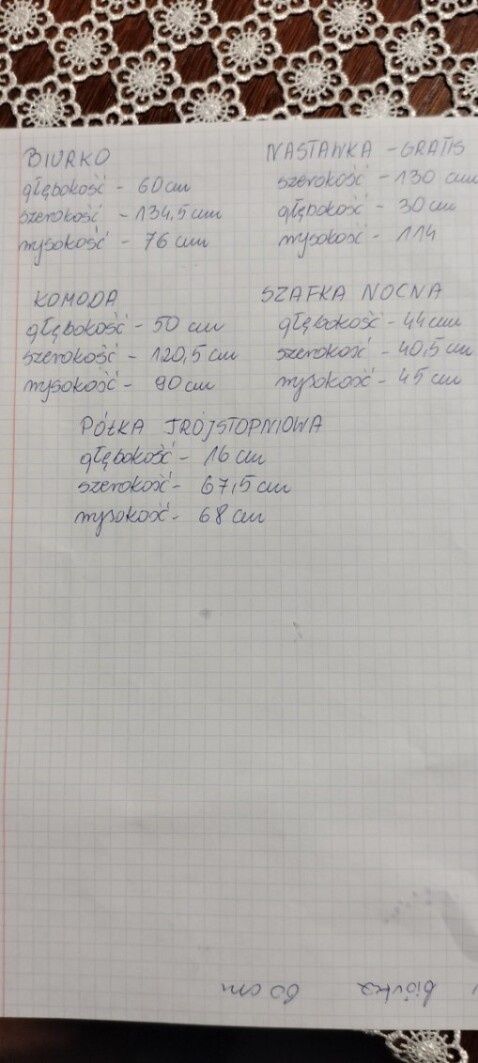 BIURKO
głębokość - 60 cm
szerokość - 134,5 cm
wysokość - 76 cm
NASTAWKA - GRATIS
szerokość - 130 cm
głębokość - 30 cm
wysokość - 114
KOMODA
głębokość - 50 cm
szerokość - 120,5 cm
wysokość - 90 cm
SZAFKA NOCNA
głębokość - 44 cm
szerokość - 40,5 cm
wysokość - 45 cm
PÓŁKA TRÓJSTOPNIOWA
głębokość - 16 cm
szerokość - 67,5 cm
wysokość - 68 cm
60 cm